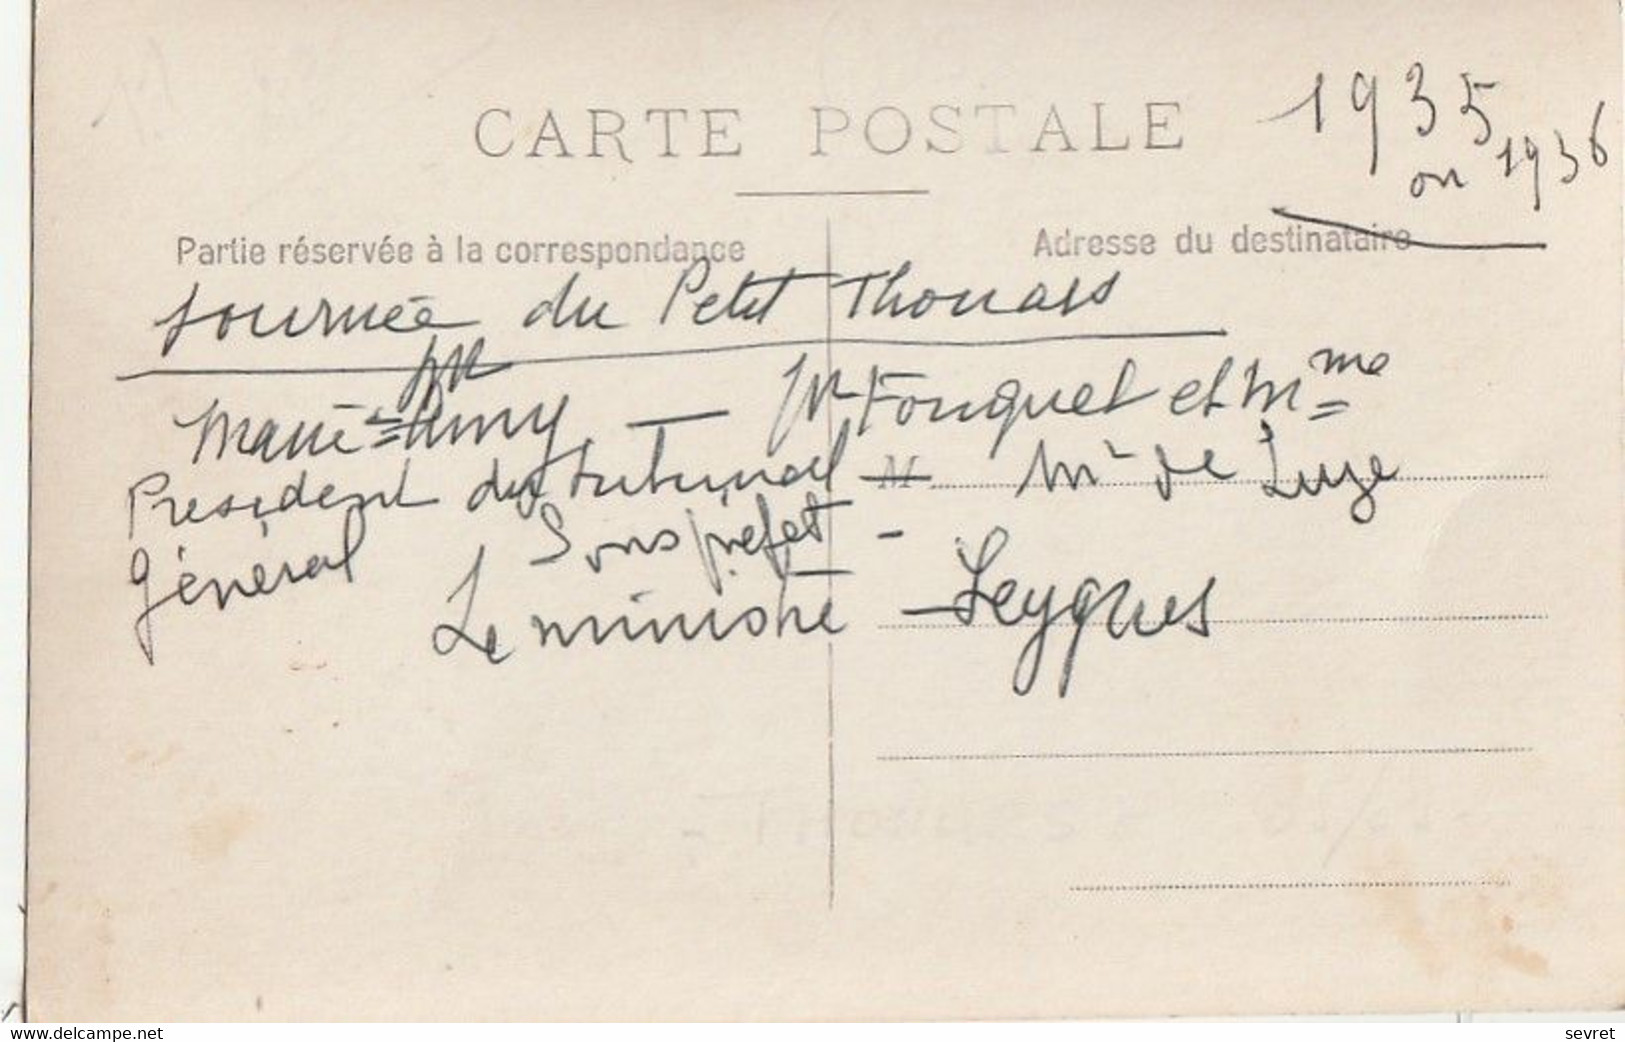 CARTE POSTALE
1935
ou 1936
Partie réservée à la correspondance
Adresse du destinataire
Journée du Petit Thouars
Mr
Maire = Amy — Mr Fouquet et Mme
President du tribunal — M Mr de Luze
Général Sous préfet -
Le ministre - Leygues
www.delcampe.net
sevret